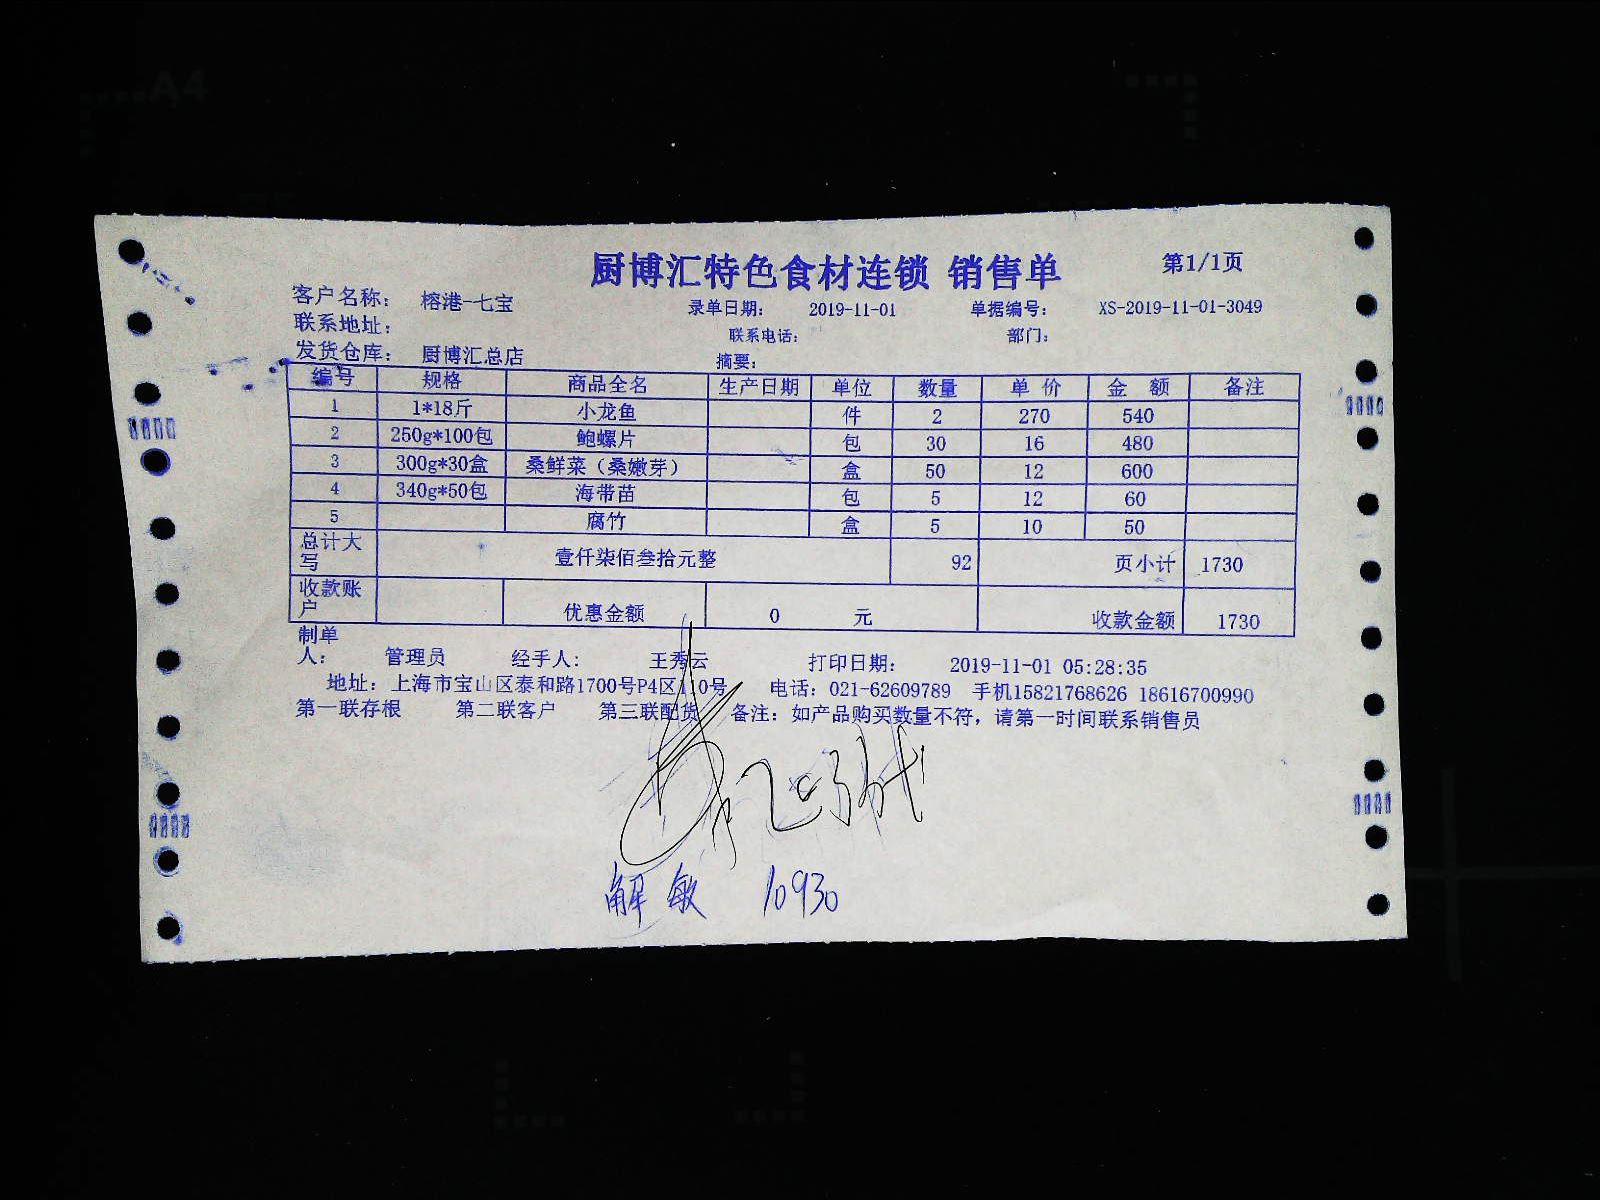 A4
厨博汇特色食材连锁 销售单 第1/1页
客户名称： 榕港-七宝 录单日期： 2019-11-01 单据编号： XS-2019-11-01-3049
联系地址： 联系电话： 部门：
发货仓库： 厨博汇总店 摘要：
编号 规格 商品全名 生产日期 单位 数量 单 价 金 额 备注
1 1*18斤 小龙鱼 件 2 270 540
2 250g*100包 鲍螺片 包 30 16 480
3 300g*30盒 桑鲜菜（桑嫩芽） 盒 50 12 600
4 340g*50包 海带苗 包 5 12 60
5 腐竹 盒 5 10 50
总计大写 壹仟柒佰叁拾元整 92 页小计 1730
收款账户 优惠金额 0 元 收款金额 1730
制单人： 管理员 经手人： 王秀云 打印日期： 2019-11-01 05:28:35
地址：上海市宝山区泰和路1700号P4区110号 电话：021-62609789 手机15821768626 18616700990
第一联存根 第二联客户 第三联配货 备注：如产品购买数量不符，请第一时间联系销售员
解敏 10930